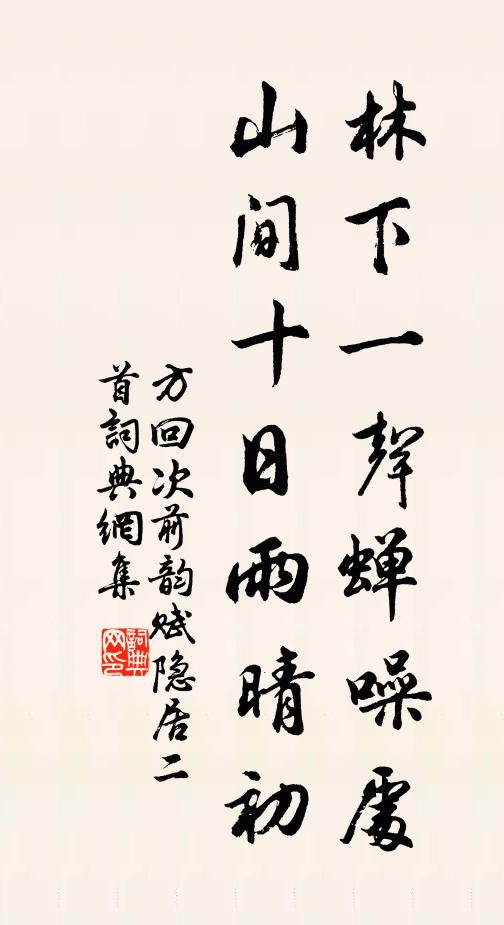 林下一聲蟬噪處
山间十日雨晴初
方回次前韵赋隐居二
首詞典網集
詞典网印